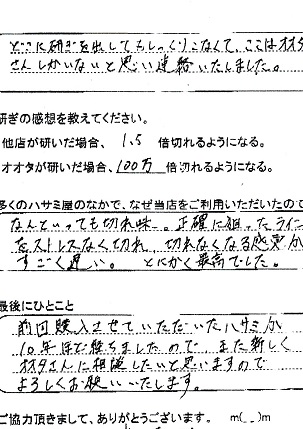 どこに研ぎを出してもしっくりこなくて、ここはオオタ
さんしかいないと思い連絡いたしました。
研ぎの感想を教えてください。
他店が研いだ場合、1.5倍切れるようになる。
オオタが研いだ場合、100万倍切れるようになる。
多くのハサミ屋のなかで、なぜ当店をご利用いただいたので
なんといっても切れ味。正確に狙ったライン
をストレスなく切れ、切れなくなる感覚が
すごく遅い。とにかく最高でした。
最後にひとこと
前回購入させていただいたハサミが
10年ほど経ちましたので、また新しく
オオタさんに相談したいと思いますので
よろしくお願いいたします。
ご協力頂きまして、ありがとうございます。 m(_)m